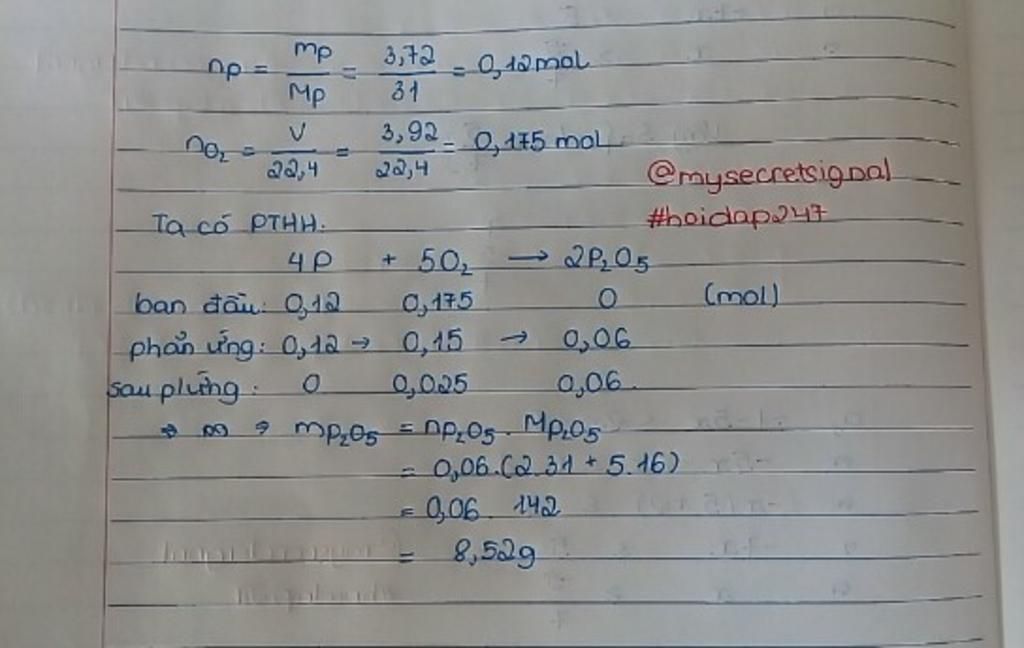 np = mp/Mp = 3,72/31 = 0,12 mol
nO₂ = V/22,4 = 3,92/22,4 = 0,175 mol
@mysecretsignal
#hoidap247
Ta có PTHH:
4P + 5O₂ → 2P₂O₅
ban đầu: 0,12 0,175 0 (mol)
phản ứng: 0,12 → 0,15 → 0,06
sau plứng: 0 0,025 0,06
⇒ m ⇒ mp₂O₅ = np₂O₅ . Mp₂O₅
= 0,06.(2.31 + 5.16)
= 0,06 142
= 8,52g